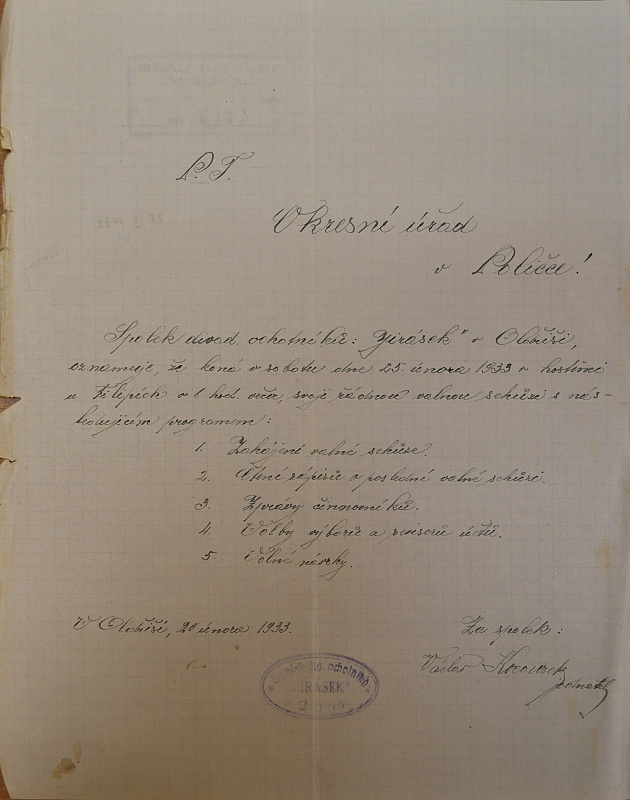 P. T.
Okresní úřad
v Poličce!
Spolek divad. ochotníků: "Jirásek" v
oznamuje, že koná v sobotu dne 25. února 1933 v hostinci
u v 6 hod. večer, svoji řádnou valnou schůzi s nás-
ledujícím programem:
1. Zahájení valné schůze.
2. Čtení zápisů o poslední valné schůzi.
3. Zprávy činnovníků.
4. Volby výborů a revisorů účtů.
5. Volné návrhy.
V 20 února 1933.
Za spolek:
Václav
jednatel
ochotníků
"JIRÁSEK"